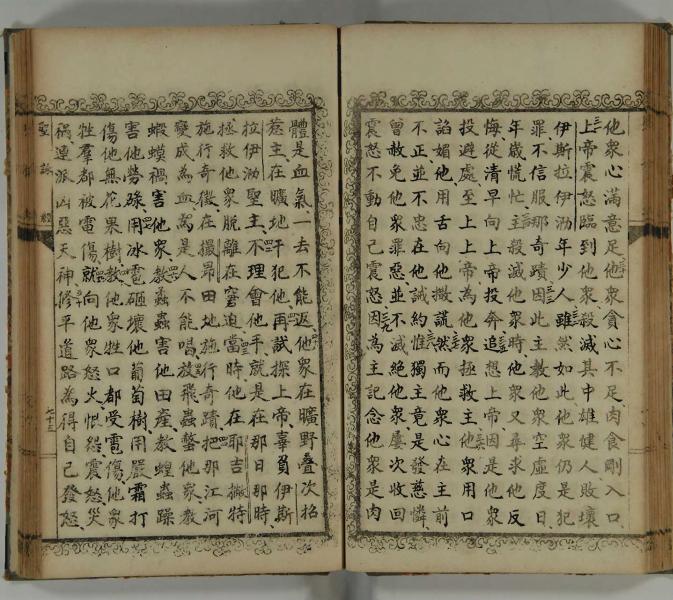 他衆心滿意足他衆貪心不足肉食剛入口
上帝震怒臨到他衆殺滅其中雄健人敗壞
伊斯拉伊泐年少人雖然如此他衆仍是犯
罪不信服那奇蹟因此主教他衆空虛度日
年歲慌忙主殺滅他衆時他衆又尋求他反
悔從清早向上帝投奔追想上帝因是他衆
投避處至上上帝為他衆拯救主他衆用口
諂媚他用舌向他撒謊然而他衆心在主前
不正並不忠在他誡約惟獨主竟是發慈憐
曾赦免他衆罪惡並不滅絕他衆屢次收回
震怒不動自己震怒因為主記念他衆是肉
體是血氣一去不能返他衆在曠野疊次招
惹主在曠地干犯他再試探上帝辜負伊斯
拉伊泐聖主不理會他手就是在那日那時
拯救他衆脫離在窘迫當時他在耶吉撇特
施行奇徵在撮昂田地施行奇蹟把那江河
變成為血為是人不能喝放飛蟲螫他家教
蝦蟆禍害他衆教蟲害他田産教蝗蟲躁
害他勞碌用冰雹砸壞他葡萄樹用嚴霜打
傷他無花果樹教他衆牲口都受雹傷他衆
牲羣都被電傷就向他衆怒火恨怨震怒災
禍遣派凶惡天神修平道路為得自己發怒
聖詠經
七十三